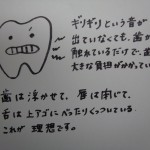 ギリギリという音が
出ていなくても、歯が
触れているだけで、歯
大きな負担がかかってい
歯は浮かせて、唇は閉じて、
舌は上アゴにべったりくっついている
これが 理想です。